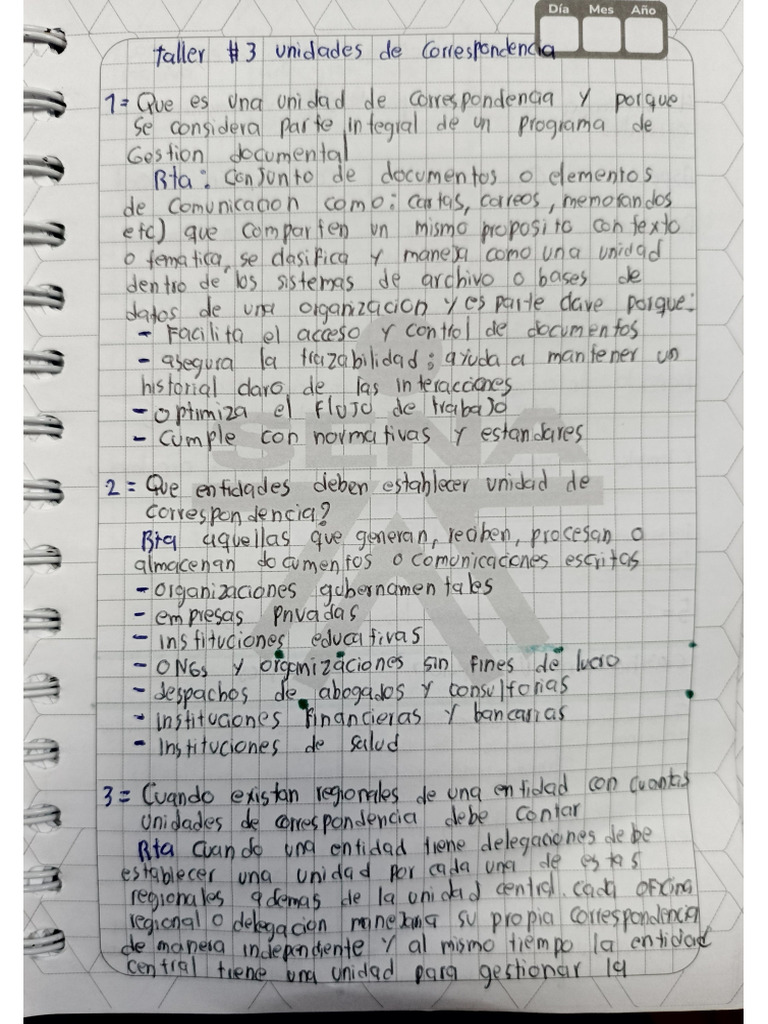 Día Mes Año
taller #3 unidades de correspondencia
1= Que es una unidad de correspondencia y porque
se considera parte integral de un programa de
Gestion documental
Rta: conjunto de documentos o elementos
de comunicacion como: cartas, correos, memorandos
etc) que comparten un mismo proposito contexto
o tematica, se clasifica y maneja como una unidad
dentro de los sistemas de archivo o bases de
datos de una organizacion y es parte clave porque:
- Facilita el acceso y control de documentos
- asegura la trazabilidad; ayuda a mantener un
historial claro de las interacciones
- optimiza el flujo de trabajo
- cumple con normativas y estandares
SENA
2= Que entidades deben establecer unidad de
correspondencia?
Rta aquellas que generan, reciben, procesan o
almacenan documentos o comunicaciones escritas
- organizaciones gubernamentales
- empresas privadas
- instituciones educativas
- ONGs y organizaciones sin fines de lucro
- despachos de abogados y consultorias
- instituciones financieras y bancarias
- Instituciones de salud
3= Cuando existan regionales de una entidad con cuantas
unidades de correspondencia debe contar
Rta Cuando una entidad tiene delegaciones debe
establecer una unidad por cada una de estas
regionales ademas de la unidad central. cada oficina
regional o delegacion manejana su propia correspondencia
de manera independiente y al mismo tiempo la entidad
central tiene una unidad para gestionar la